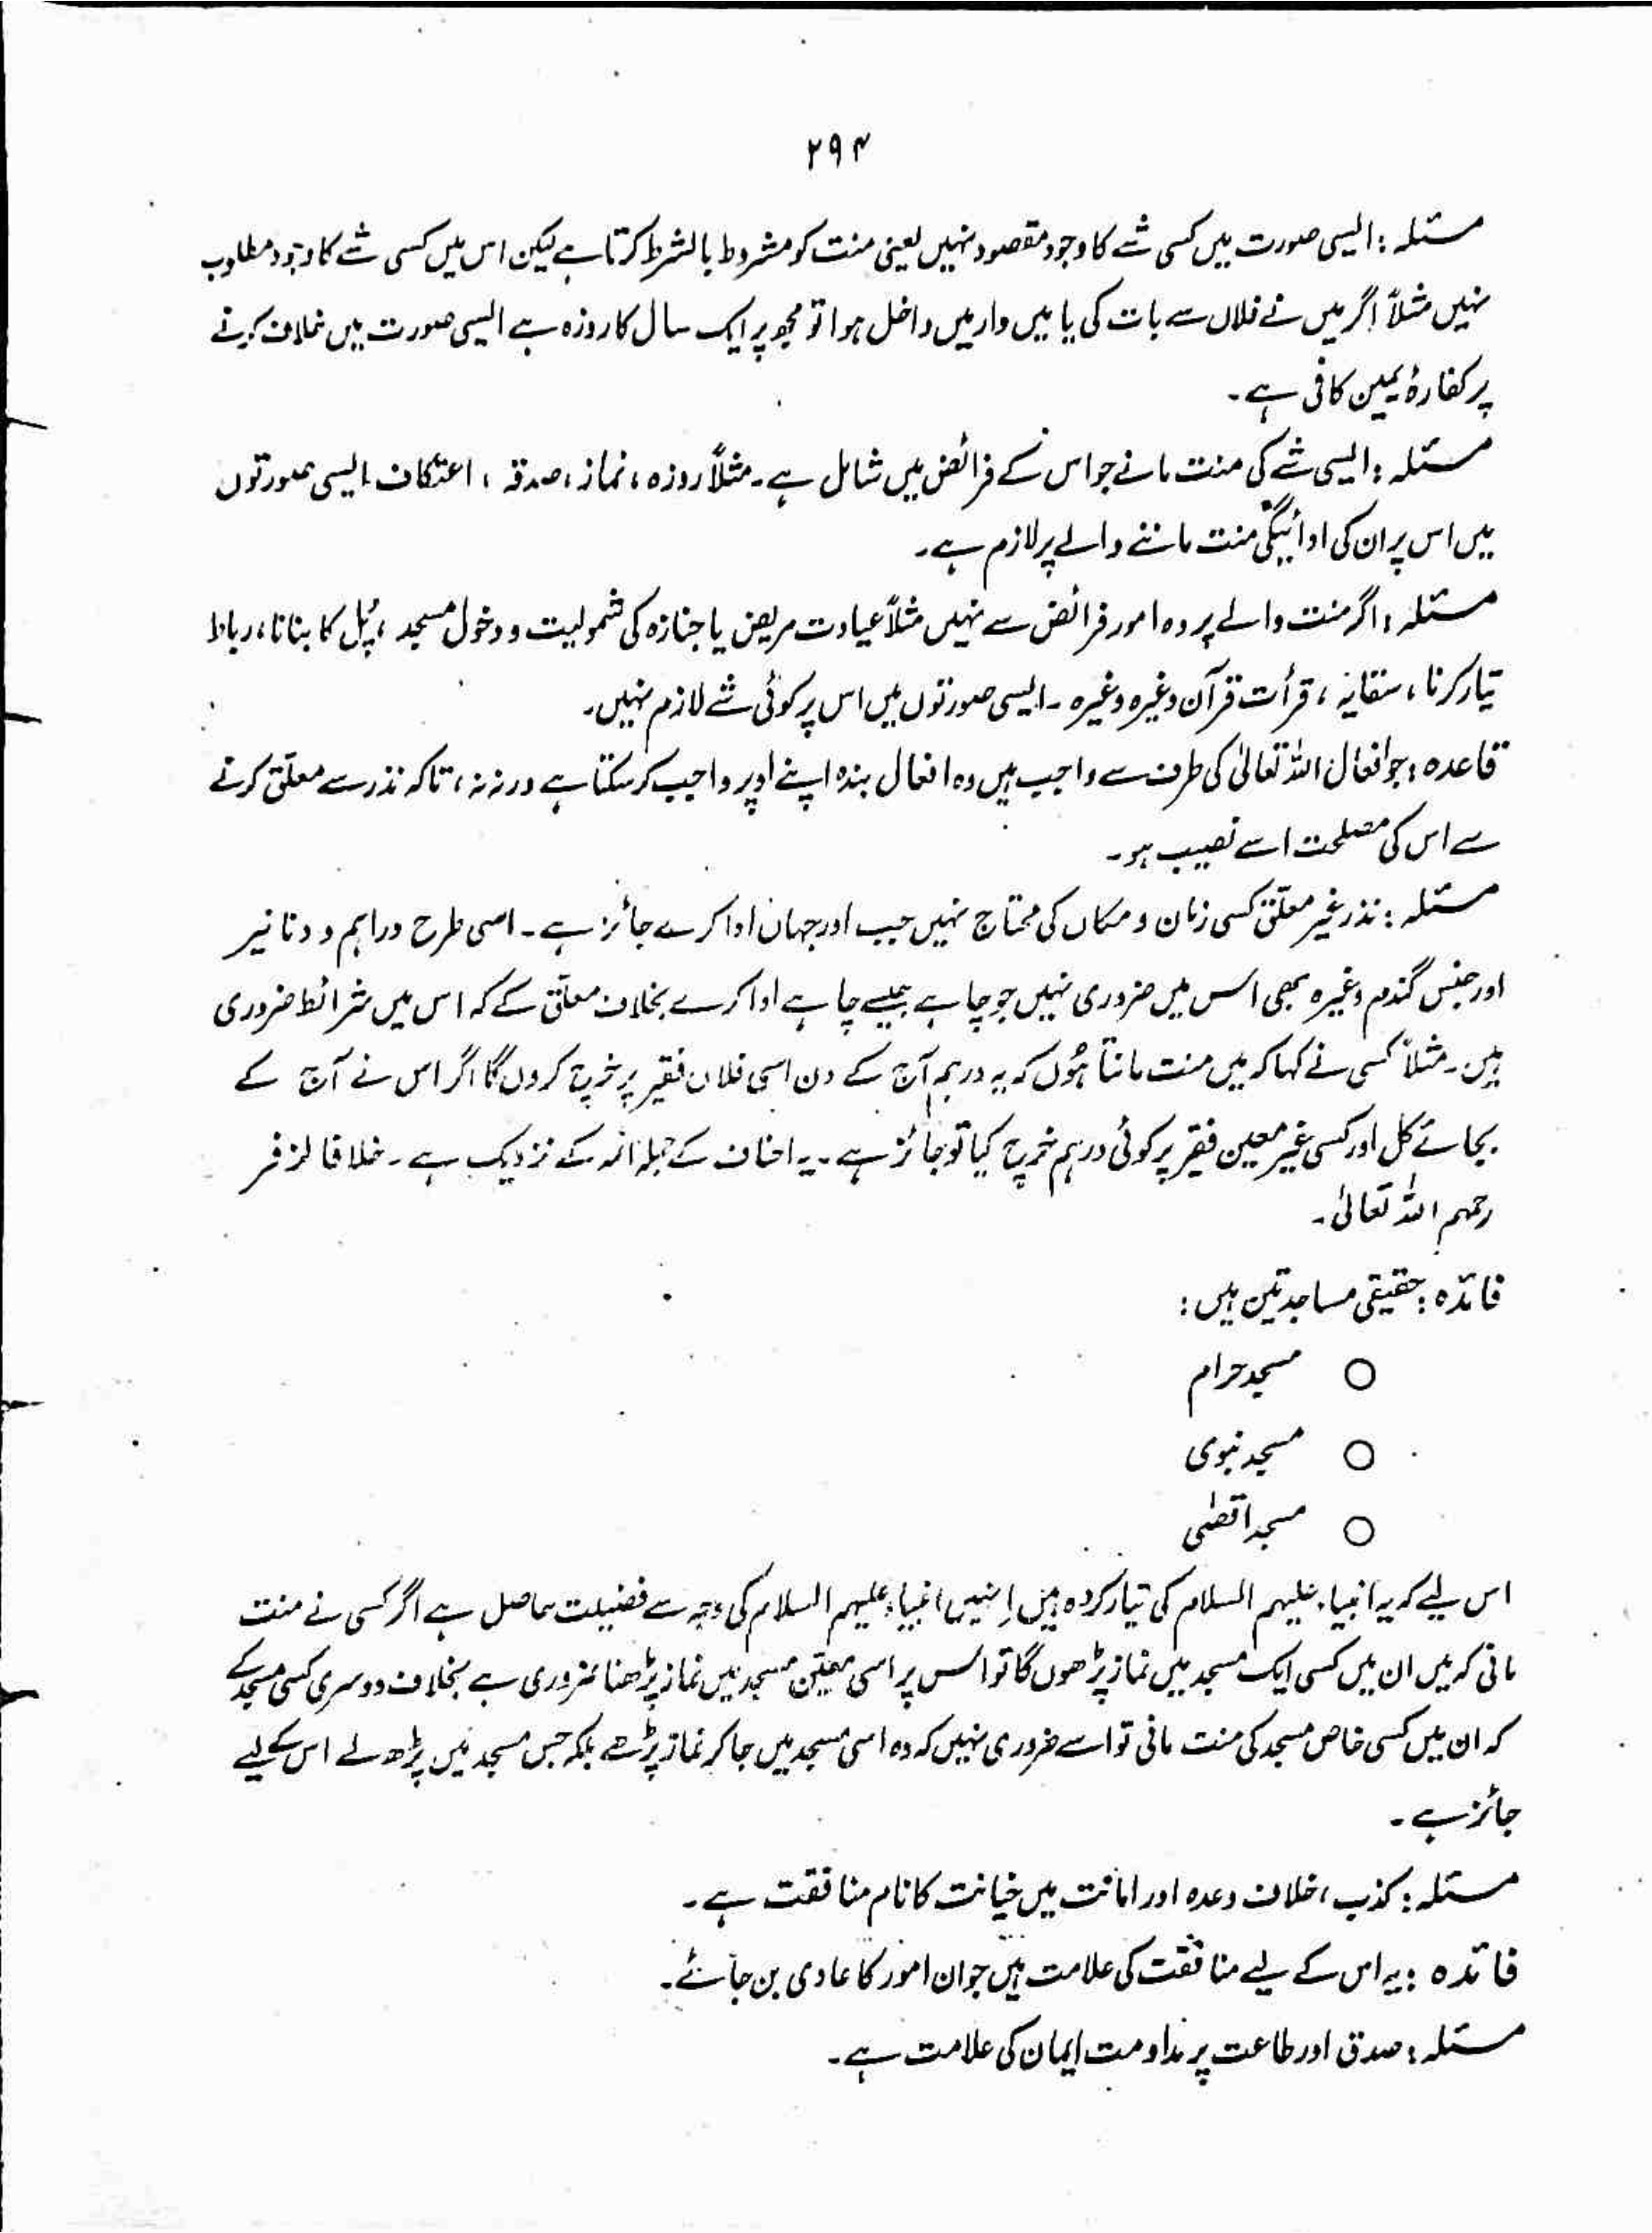 ۲۹۴
مسئلہ : ایسی صورت میں کسی شے کا وجود مقصود نہیں یعنی منت کو مشروط بالشرط کرتا ہے لیکن اس میں کسی شے کا وجود مطلوب
نہیں مثلاً اگر میں نے فلاں سے بات کی یا میں دار میں داخل ہوا تو مجھ پر ایک سال کا روزہ ہے ایسی صورت میں خلاف کرنے
پر کفارۂ یمین کافی ہے۔
مسئلہ : ایسی شے کی منت مانے جو اس کے فرائض میں شامل ہے۔ مثلاً روزہ ، نماز ، صدقہ ، اعتکاف ایسی صورتوں
میں اس پر ان کی ادائیگی منت ماننے والے پر لازم ہے۔
مسئلہ : اگر منت والے پر وہ امور فرائض سے نہیں مثلاً عیادت مریض یا جنازہ کی شمولیت و دخول مسجد ، پُل کا بنانا ، رباط
تیار کرنا ، سقایہ ، قرأت قرآن وغیرہ وغیرہ ۔ ایسی صورتوں میں اس پر کوئی شے لازم نہیں۔
قاعدہ : جو افعال اللہ تعالیٰ کی طرف سے واجب ہیں وہ افعال بندہ اپنے اوپر واجب کر سکتا ہے ورنہ نہ ، تاکہ نذر سے معلّق کرنے
سے اس کی مصلحت اسے نصیب ہو۔
مسئلہ : نذر غیر معلّق کسی زمان و مکاں کی محتاج نہیں جب اور جہاں ادا کرے جائز ہے۔ اسی طرح دراہم و دنانیر
اور جنس گندم وغیرہ بھی اس میں ضروری نہیں جو چاہے جیسے چاہے ادا کرے بخلاف معلّق کے کہ اس میں شرائط ضروری
ہیں۔ مثلاً کسی نے کہا کہ میں منت مانتا ہُوں کہ یہ درہم آج کے دن اسی فلاں فقیر پر خرچ کروں گا اگر اس نے آج کے
بجائے کل اور کسی غیر معین فقیر پر کوئی درہم خرچ کیا تو جائز ہے۔ یہ احناف کے جملہ ائمہ کے نزدیک ہے۔ خلافا لزفر
رحمہم اللہ تعالیٰ۔
فائدہ : حقیقی مساجد تین ہیں :
○ مسجد حرام
○ مسجد نبوی
○ مسجد اقصٰی
اس لیے کہ یہ انبیاء علیہم السلام کی تیار کردہ ہیں اِنہیں انبیاء علیہم السلام کی وجہ سے فضیلت حاصل ہے اگر کسی نے منت
مانی کہ میں ان میں کسی ایک مسجد میں نماز پڑھوں گا تو اس پر اسی معیّن مسجد میں نماز پڑھنا ضروری ہے بخلاف دوسری کسی مسجد کے
کہ ان میں کسی خاص مسجد کی منت مانی تو اسے ضروری نہیں کہ وہ اسی مسجد میں جا کر نماز پڑھے بلکہ جس مسجد میں پڑھ لے اس کے لیے
جائز ہے۔
مسئلہ : کذب ، خلاف وعدہ اور امانت میں خیانت کا نام منافقت ہے۔
فائدہ : یہ اس کے لیے منافقت کی علامت ہیں جو ان امور کا عادی بن جائے۔
مسئلہ : صدق اور طاعت پر مداومت ایمان کی علامت ہے۔